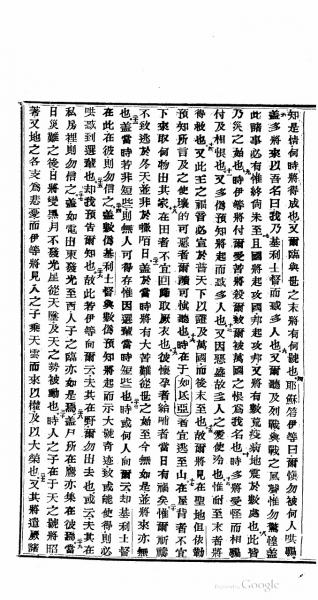 知是情何時將得成也又爾臨與世之末將有何號也耶穌答伊等曰爾愼勿被何人哄騙
蓋多將來以吾名曰我乃基利士督而哄多人也又爾聽及列戰與戰之風聲惟勿驚惶蓋
此諸事必有惟終尚未至且國將起攻國邦將起攻邦又將有數荒疫病地震於數處也此皆
乃災之始也時伊等將付爾受苦將殺爾又爾被萬國之恨爲我名也時多將受怪而相騙
付及相恨也又多僞預知將起而哄多人也又因惡盛故多人之愛使冷也惟耐至末者將
得救也又此王之福音必宣於普天下以證及萬國而後末至也故爾將見在聖地但依勒
預知所言及之使壞的可惡者爾讀可慎聽也時在于如氐亞者宜逃至山在屋背者不宜
下來取何物出其家在田者不宜囘歸取厥衣也彼懷孕者給哺者當日有禍矣惟爾祈禱
不致逃於冬天並非於日蓋當時將有大苦難從世之始至今無如是並將來亦無
也蓋當時若非短些則無人可得存惟因選輩當時短些也時或何人向爾云却基利士督
在此在彼則勿信之蓋數僞基利士督與數僞預知將起而示大號奇迹致或能使得則必
哄惑到選輩也却我預告爾知也故此若伊等向爾云夫其在野爾勿出去也或云夫其在
私房裡則勿信之蓋如電由東發光至西人子之臨亦如是焉蓋屍所在鷹亦集在彼焉當
日災難之後日將變黑月不發光星從天墜及天之勢被動也時人之子在于天之號將昭
著又地之各支爲悲憂而伊等將見人之子乘天雲而來以權及以大榮也又其將遣厥諸
Digitized by Google